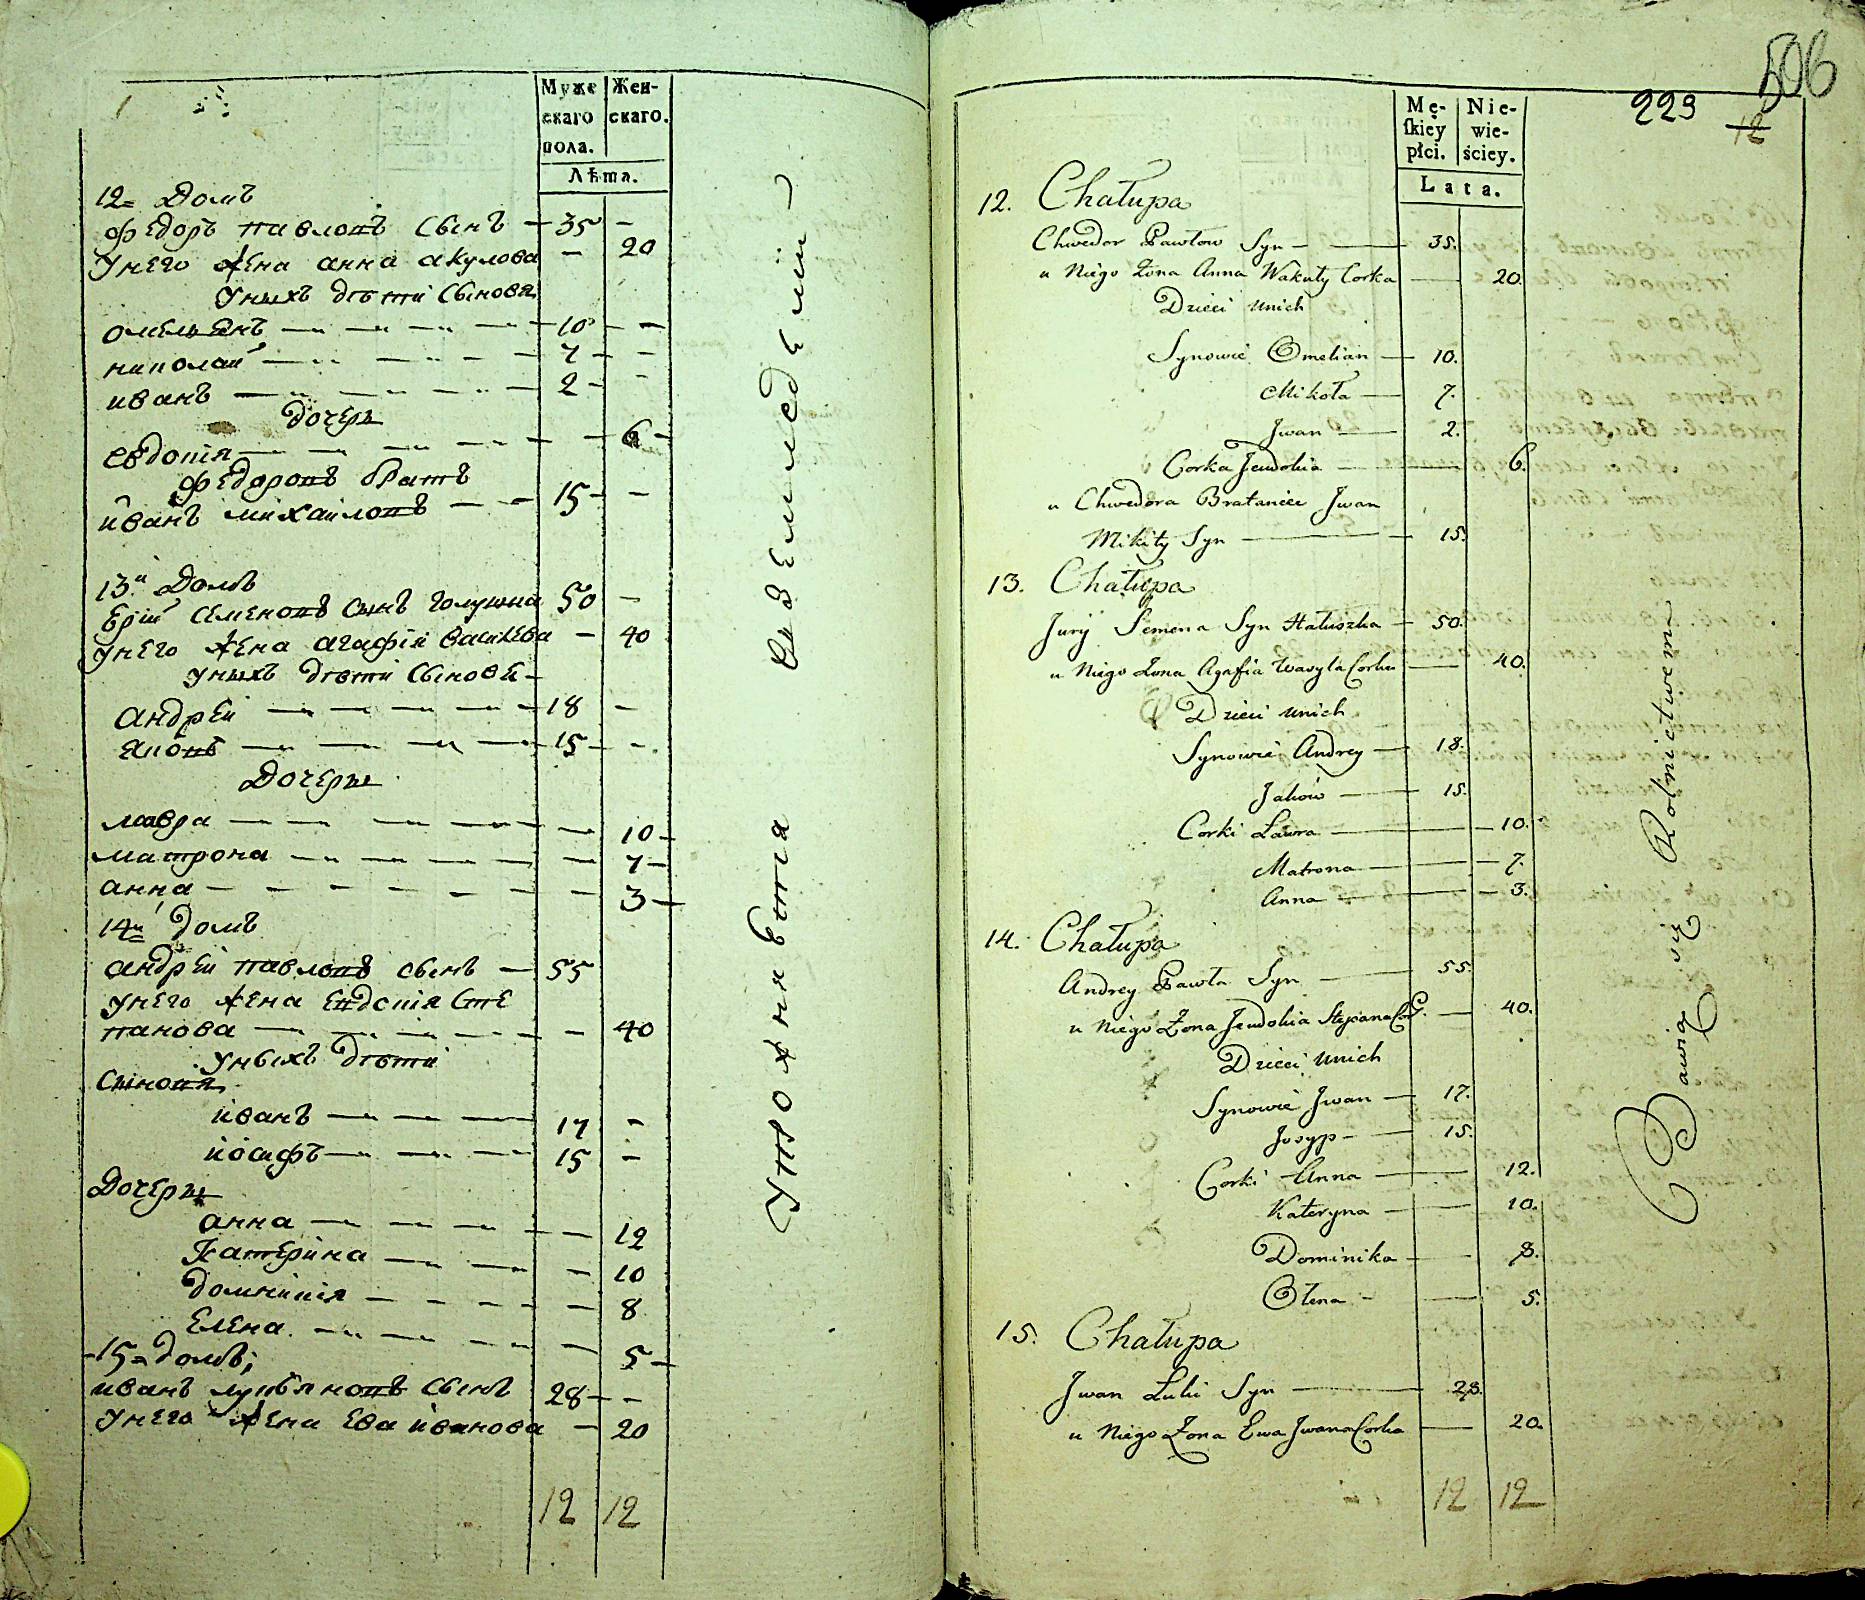 Муже
скаго
пола.
Жен-
скаго.
Лѣта.
12= Домъ
Федоръ павловъ сынъ — 35 —
унего жена анна акулова — 20
уныхъ дѣти сыновя
омельянъ — 10 —
николай — 7 —
иванъ — 2 —
дочери
евдокія — 6 —
Федоровъ братъ
иванъ михайловъ — 15 —
13й Домъ
Ерій семеновъ сынъ голушка 50 —
унего жена агафій василева — 40
уныхъ дѣти сынове
андрей — 18 —
яковъ — 15 —
Дочеры
мавра — 10 —
матрона — 7 —
анна — 3 —
14й домъ
андрей павловъ сынъ — 55
унего жена евдокія сте
панова — 40
уныхъ дѣти
сыновя
иванъ — 17 —
иосафъ — 15 —
Дочеры
анна — 12
катерина — 10
домникія — 8
Елена — 5 —
15= домъ;
иванъ лукьяновъ сынъ 28 —
унего жена ева иванова — 20
12 12
упражняется въ земледелии
506
223
12
Mę-
ſkiey
płci.
Nie-
wie-
ściey.
Lata.
12. Chałupa
Chwedor Pawłow Syn — 35.
u Niego Żona Anna Wakuły Corka — 20.
Dzieci unich
Synowie Omelian — 10.
Mikoła — 7.
Jwan — 2.
Corka Jewdokia — 6.
u Chwedora Brataniec Jwan
Mikity Syn — 15.
13. Chałupa
Jurÿ Semena Syn Hałuszka — 50.
u Niego Żona Agafia Wasyla Corka — 40.
Dzieci unich
Synowie Andrey — 18.
Jakow — 15.
Corki Ławra — 10.
Matrona — 7.
Anna — 3.
14. Chałupa
Andrey Pawła Syn — 55.
u Niego Żona Jewdokia Stepana Cor. — 40.
Dzieci unich
Synowie Jwan — 17.
Josyp — 15.
Corki Anna — 12.
Kateryna — 10.
Dominika — 8.
Ołena — 5.
15. Chałupa
Jwan Łuki Syn — 28.
u Niego Żona Ewa Jwana Corka — 20.
12 12
Bawią się Rolnictwem